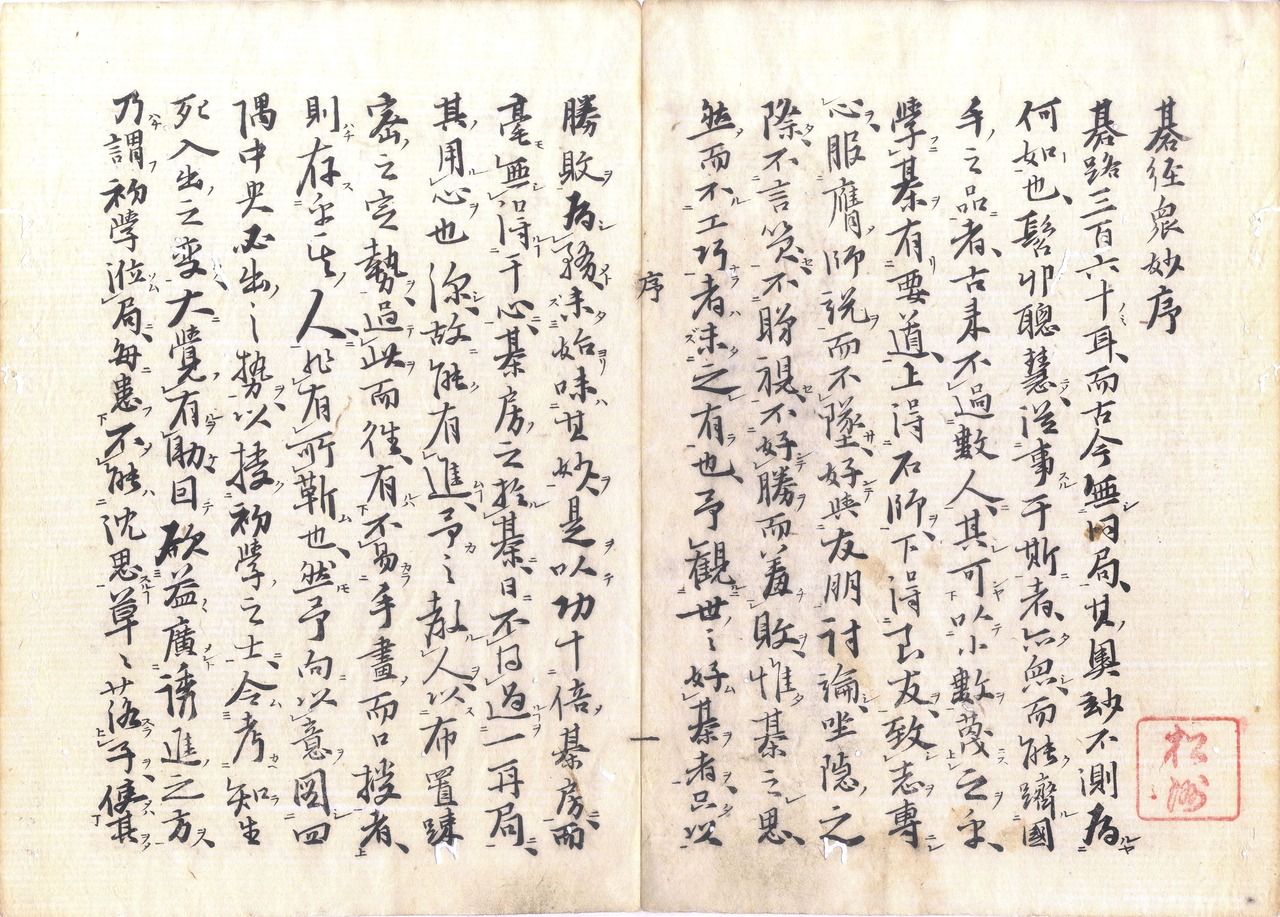 碁経衆妙序
碁路三百六十耳、而古今無同局、其奥妙不測、為
何如也、髫丱聰慧從事于斯者、亦無而能躋國
手之品者、古来不過數人、其可以小數蔑之乎、
學棊有要道、上得石師、下得良友、致志專
心、服膺師説而不墜、好與友朋討論、坐隠之
際、不言笑、不眄視、不好勝而羞敗、惟棊之思、
然而不工巧者、未之有也、予觀世之好棊者、只以
序
一
勝敗為務、未始味其妙、是以功十倍棊房、而
毫無得于心、棊房之於棊、日不得過一再局、
其用心也深、故能有進、予之教人、以布置踈
密之定勢、過此而徃、有不易手畫而口授者、
則存乎其人、非有所靳也、然予向以意圖四
隅中央必出之勢、以授初學之士、令考知生
死入出之変、大覺有助、因欲益廣誘進之方、
乃謂初學涖局、毎患不能沈思、草々落子、使其
松洲